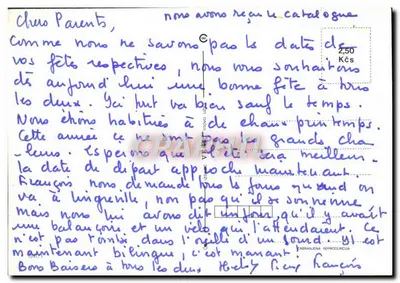 nous avons reçu le catalogue
Chers Parents,
Comme nous ne savons pas les dates de
vos fêtes respectives, nous vous souhaitons
dès aujourd'hui une bonne fête à tous
les deux. Ici tout va bien sauf le temps.
Nous étions habitués à de chaux printemps.
Cette année ce ne sont pas les grandes cha-
leurs. Esperons que l'été sera meilleur.
la date du départ approche maintenant.
François nous demande tous les jours quand on
va à Longeville, non pas qu'il se
mais nous lui avons dit un jour qu'il y avait
une balançoire et un vélo qui l'attendaient. Ce
n'est pas tombé dans l'oreille d'un sourd. Il est
maintenant bilingue, c'est marrant!
Bons Baisers à tous les deux François
2,50
Kčs